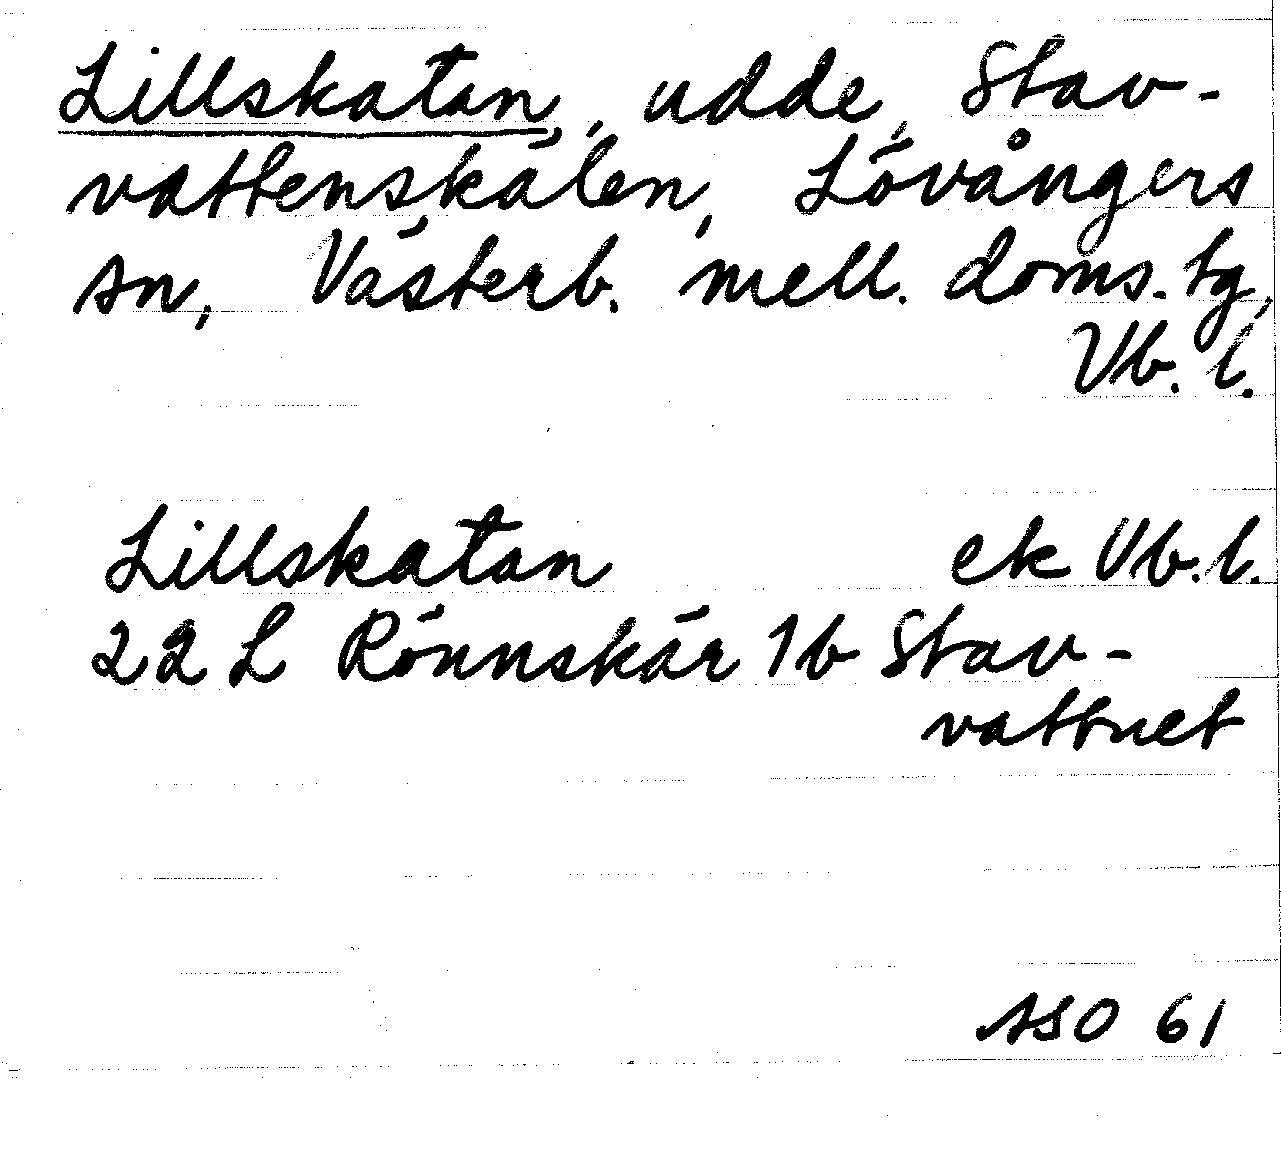 Lillskatan, udde, Stav-
vattenskälen, Lövångers
sn, Västerb. mell. doms. tg,
Vb. l.
Lillskatan ek Vb. l.
22 L Rönnskär 1b Stav-
vattnet
ASO 61